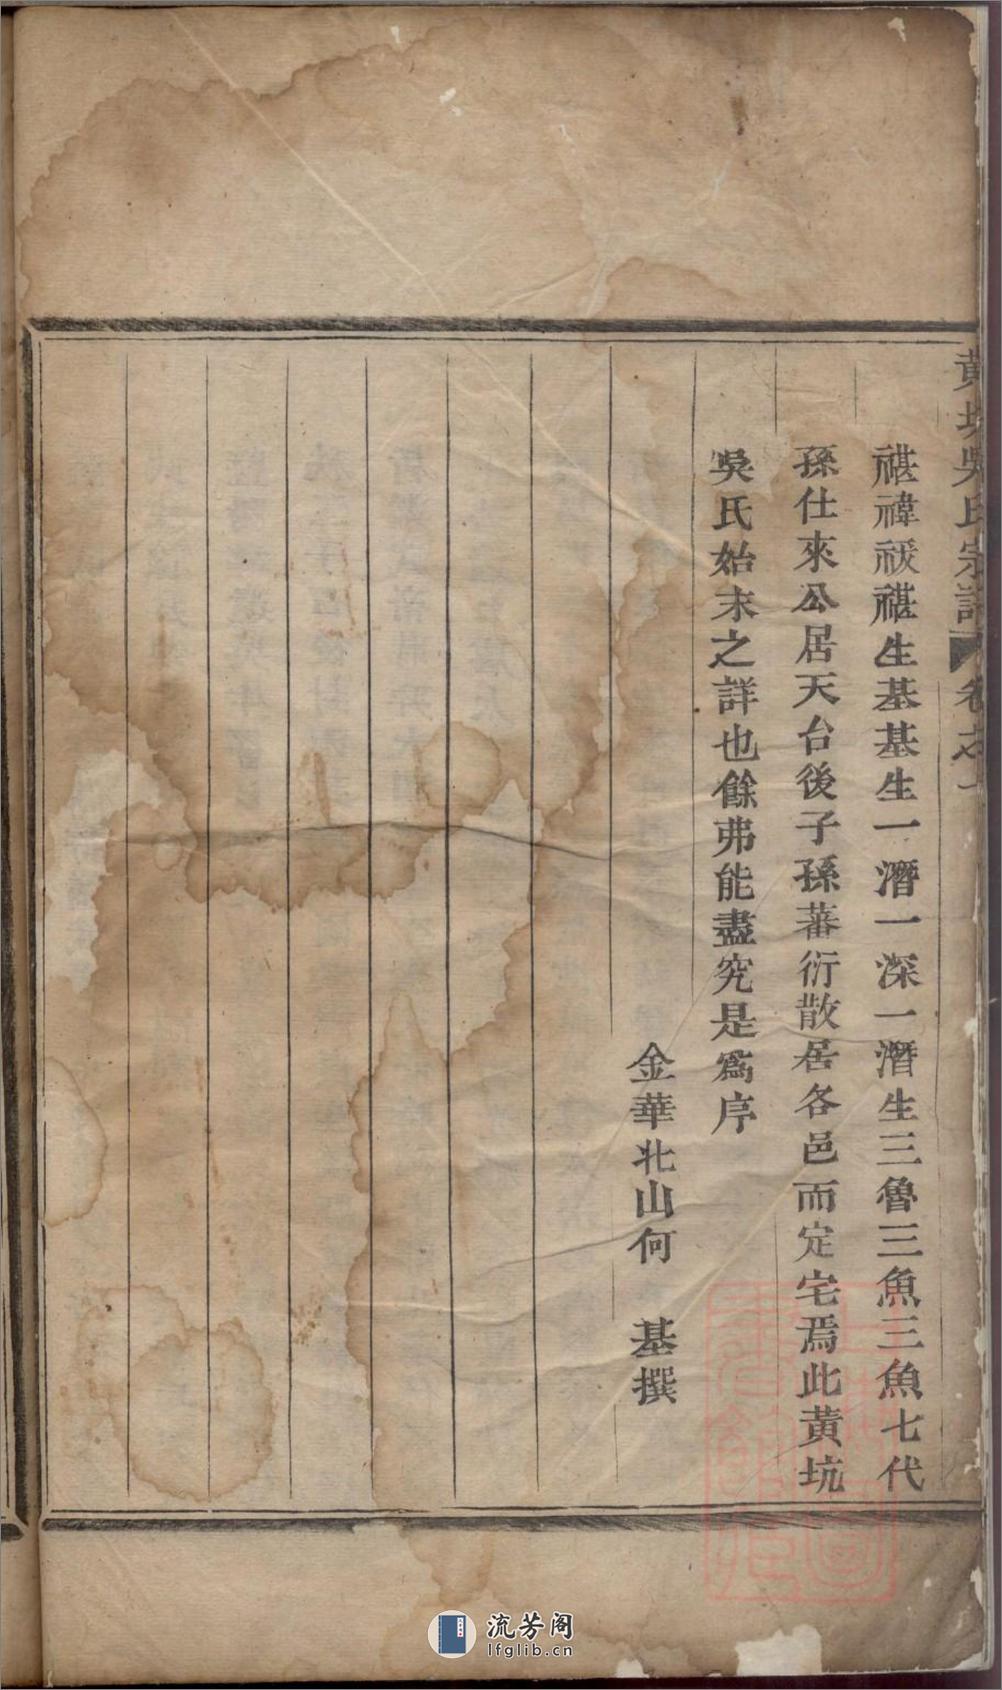 黃坑吳氏宗譜 卷之一
禥禕祓禥生基基生一潛一深一潛生三魯三魚三魚七代
孫仕來公居天台後子孫蕃衍散居各邑而定宅焉此黃坑
吳氏始末之詳也餘弗能盡究是爲序
金華北山何 基撰
流芳阁
lfglib.cn